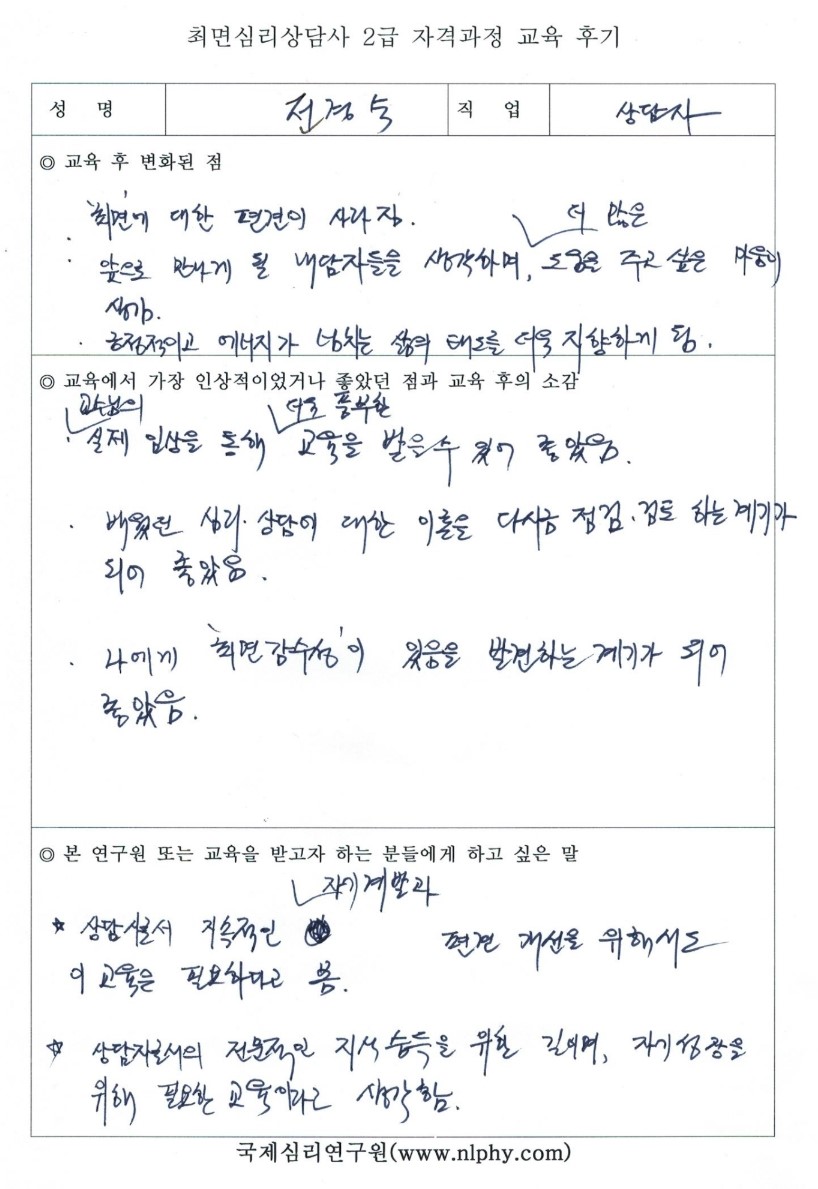 최면심리상담사 2급 자격과정 교육 후기
성 명 전경숙 직 업 상담자
◎ 교육 후 변화된 점
· '최면'에 대한 편견이 사라짐.
더 많은
· 앞으로 만나게 될 내담자들을 생각하며, 도움을 주고 싶은 마음이
생김.
· 긍정적이고 에너지가 넘치는 삶의 태도를 더욱 지향하게 됨.
◎ 교육에서 가장 인상적이었거나 좋았던 점과 교육 후의 소감
교수님의 더욱 풍부한
· 실제 임상을 통해 교육을 받을수 있어 좋았음.
· 배웠던 심리·상담에 대한 이론을 다시금 점검·검토 하는 계기가
되어 좋았음.
· 나에게 '최면감수성'이 있음을 발견하는 계기가 되어
좋았음.
◎ 본 연구원 또는 교육을 받고자 하는 분들에게 하고 싶은 말
자기계발과
☆ 상담사로서 지속적인 편견 개선을 위해서도
이 교육은 필요하다고 봄.
☆ 상담자로서의 전문적인 지식 습득을 위한 길이며, 자기성장을
위해 필요한 교육이라고 생각함.
국제심리연구원(www.nlphy.com)